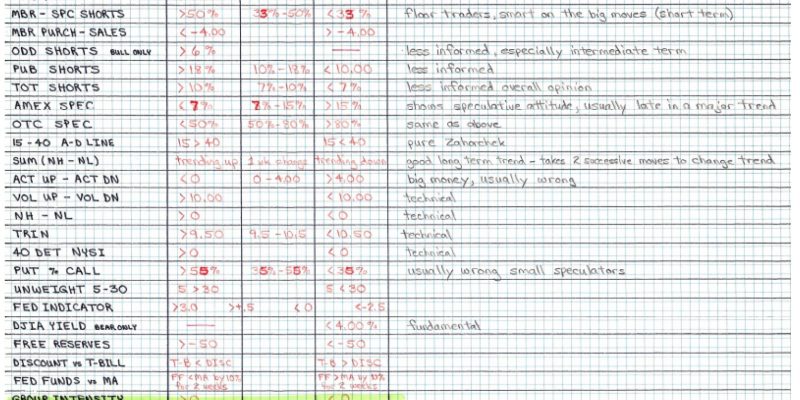 MBR - SPC SHORTS >50% 33%-50% <33% floor traders, smart on the big moves (short term)
MBR PURCH - SALES <-4.00 >-4.00
ODD SHORTS BULL ONLY >6% — less informed, especially intermediate term
PUB SHORTS >18% 10%-18% <10.00 less informed
TOT SHORTS >10% 7%-10% <7% less informed overall opinion
AMEX SPEC <7% 7%-15% >15% shows speculative attitude, usually late in a major trend
OTC SPEC <50% 50%-80% >80% same as above
15-40 A-D LINE 15>40 15<40 pure Zahorchek
SUM (NH - NL) trending up 1 wk change trending down good long term trend - takes 2 successive moves to change trend
ACT UP - ACT DN <0 0-4.00 >4.00 big money, usually wrong
VOL UP - VOL DN >10.00 <10.00 technical
NH - NL >0 <0 technical
TRIN >9.50 9.5-10.5 <10.50 technical
40 DET NYSI >0 <0 technical
PUT % CALL >55% 35%-55% <35% usually wrong small speculators
UNWEIGHT 5-30 5>30 5<30
FED INDICATOR >3.0 >4.5 <0 <-2.5
DJIA YIELD BEAR ONLY — <4.00% fundamental
FREE RESERVES >-50 <-50
DISCOUNT vs T-BILL T-B < DISC T-B > DISC
FED FUNDS vs MA FF <MA by 10% for 2 weeks FF >MA by 10% for 2 weeks
GROUP INTENSITY >0 <0